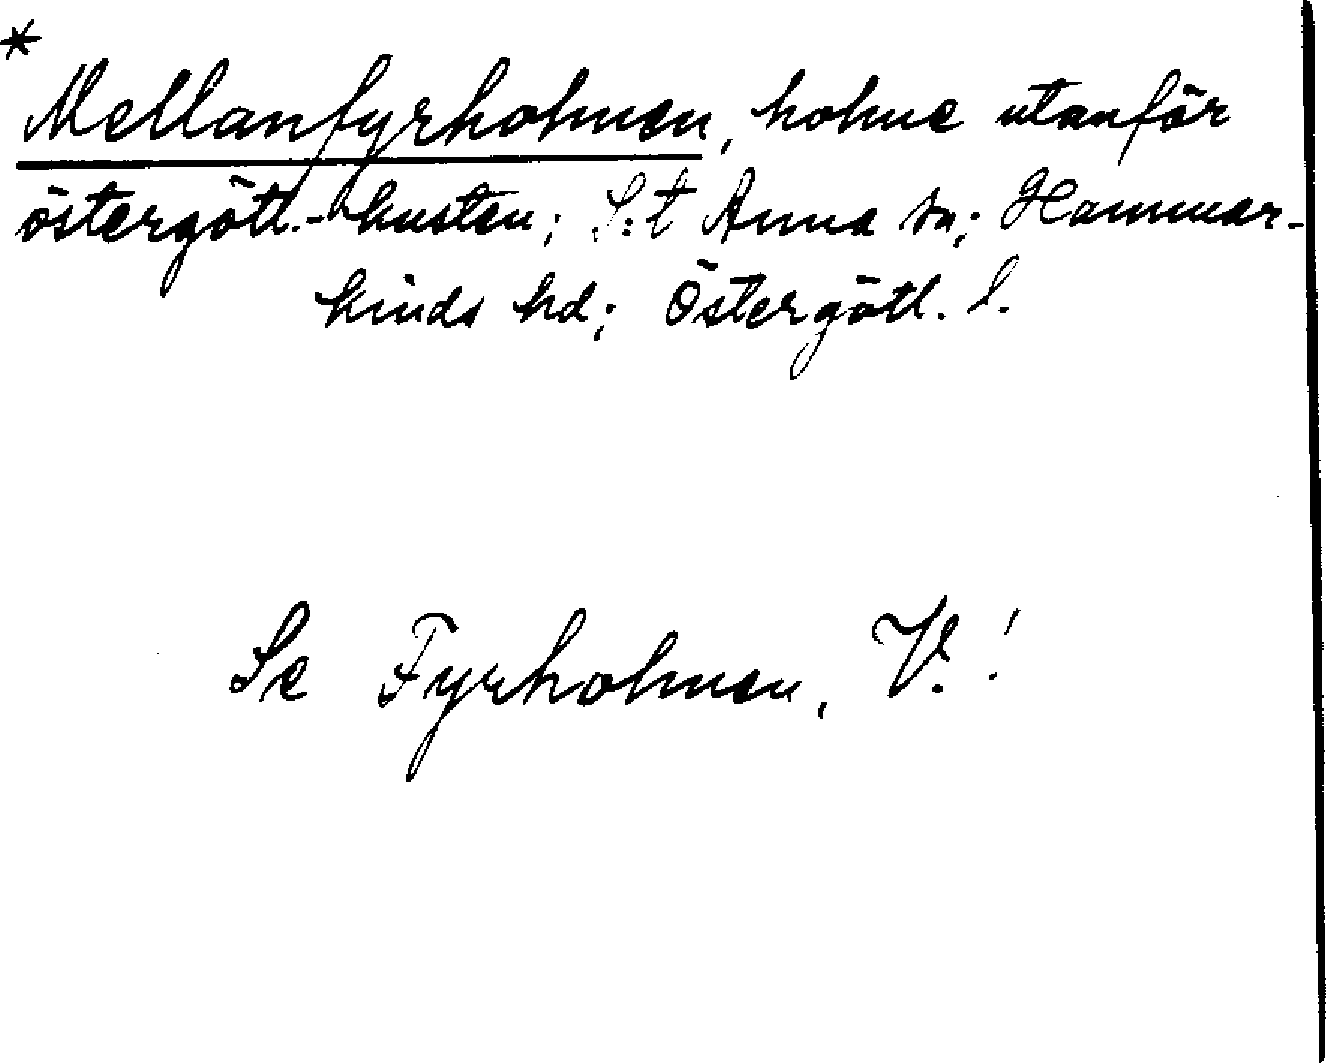 *
Mellanfyrholmen, holme utanför
östergötl.-kusten; S:t Anna sn; Hammar-
kinds hd; Östergötl. l.
Se Fyrholmen, V.!